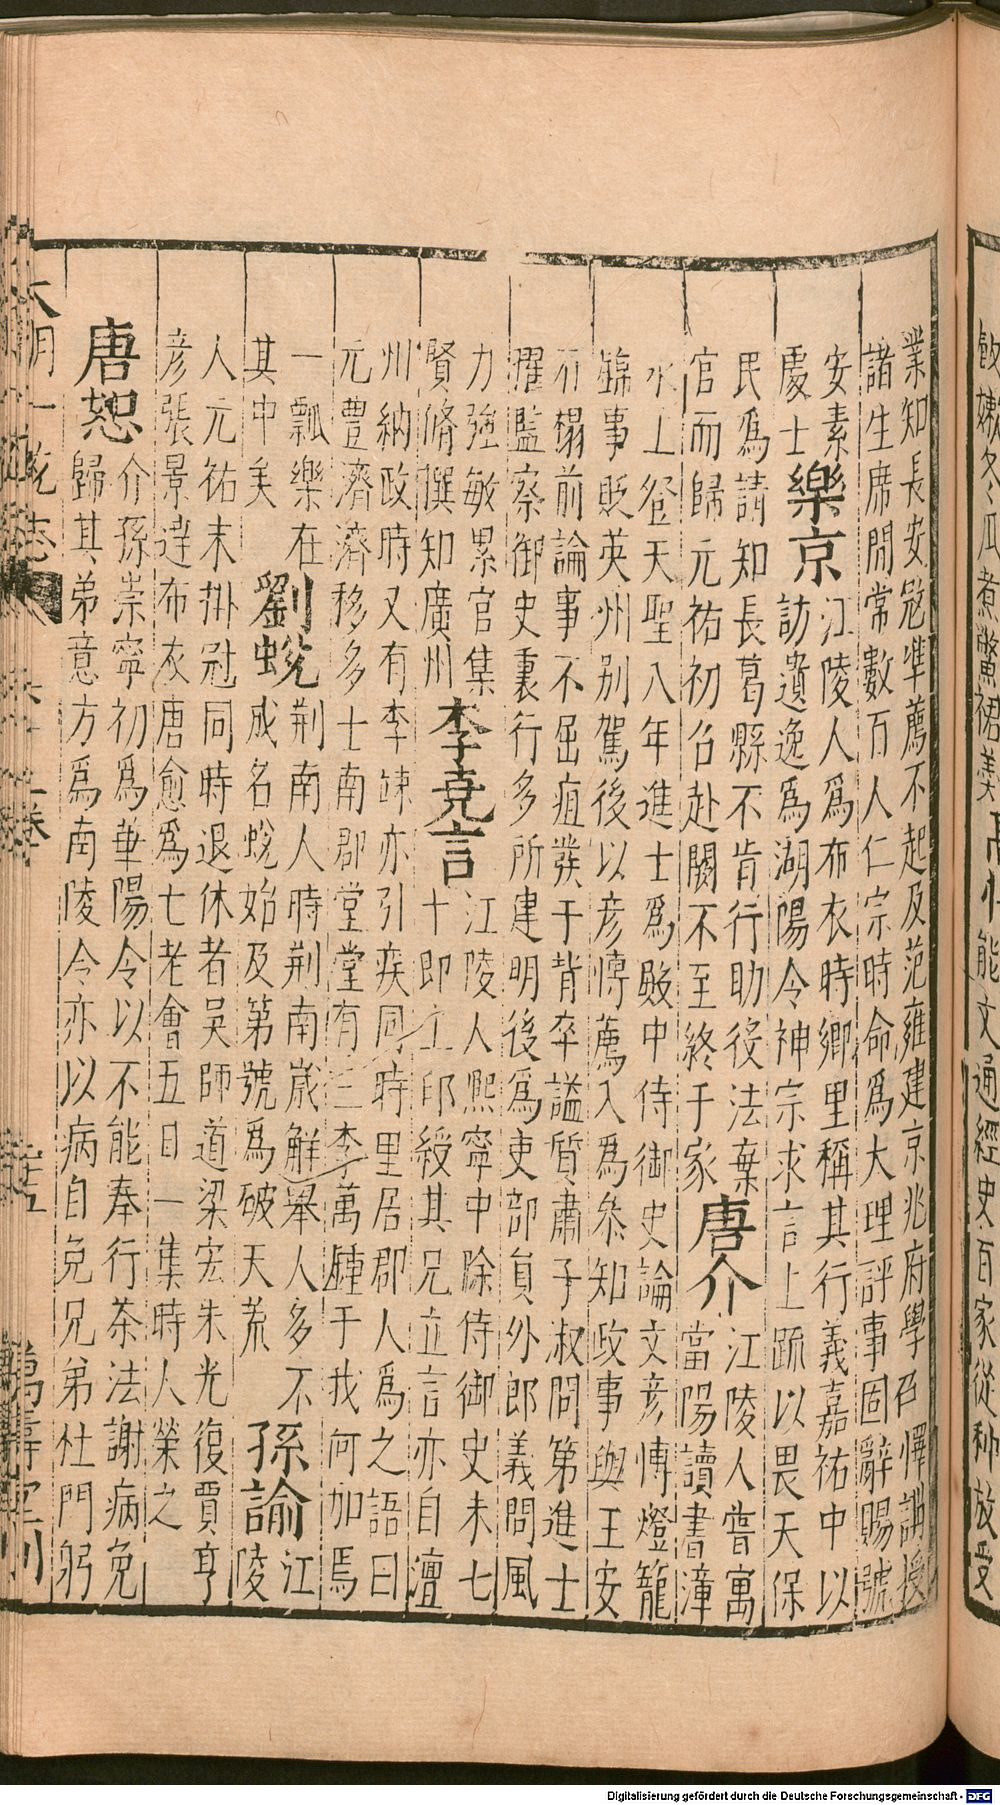 飲嫩冬瓜煮鱉裙羹高 能文通經史百家從种放受
業知長安寇準薦不起及范雍建京兆府學召懌講授
諸生席間常數百人仁宗時命爲大理評事固辭賜號
安素
處士
樂京
江陵人爲布衣時鄉里稱其行義嘉祐中以
訪遺逸爲湖陽令神宗求言上疏以畏天保
民爲請知長葛縣不肯行助役法棄
官而歸元祐初召赴闕不至終于家
唐介
江陵人甞寓
當陽讀書漳
水上登天聖八年進士爲殿中侍御史論文彦愽燈籠
錦事貶英州别駕後以彦愽薦入爲叅知政事與王安
石榻前論事不屈疽發于背卒謚質肅子淑問第進士
擢監察御史裏行多所建明後爲吏部員外郎義問風
力強敏累官集
賢脩撰知廣州
李堯言
江陵人熙寧中除侍御史未七
十即上印綬其兄立言亦自澶
州納政時又有李竦亦引疾同時里居郡人爲之語曰
元豐濟濟移多士南郡堂堂有三李萬鍾于我何加焉
一瓢樂在
其中矣
劉蛻
荆南人時荆南歲解舉人多不
成名蛻始及第號爲破天荒
孫諭
江
陵
人元祐末掛冠同時退休者吳師道梁宏朱光復賈亨
彦張景達布衣唐愈爲七老會五日一集時人榮之
唐恕
介孫崇寧初爲華陽令以不能奉行茶法謝病免
歸其弟意方爲南陵令亦以病自免兄弟杜門躬
大明一統志 卷 二十五 萬壽堂刊
Digitalisierung gefördert durch die Deutsche Forschungsgemeinschaft - DFG